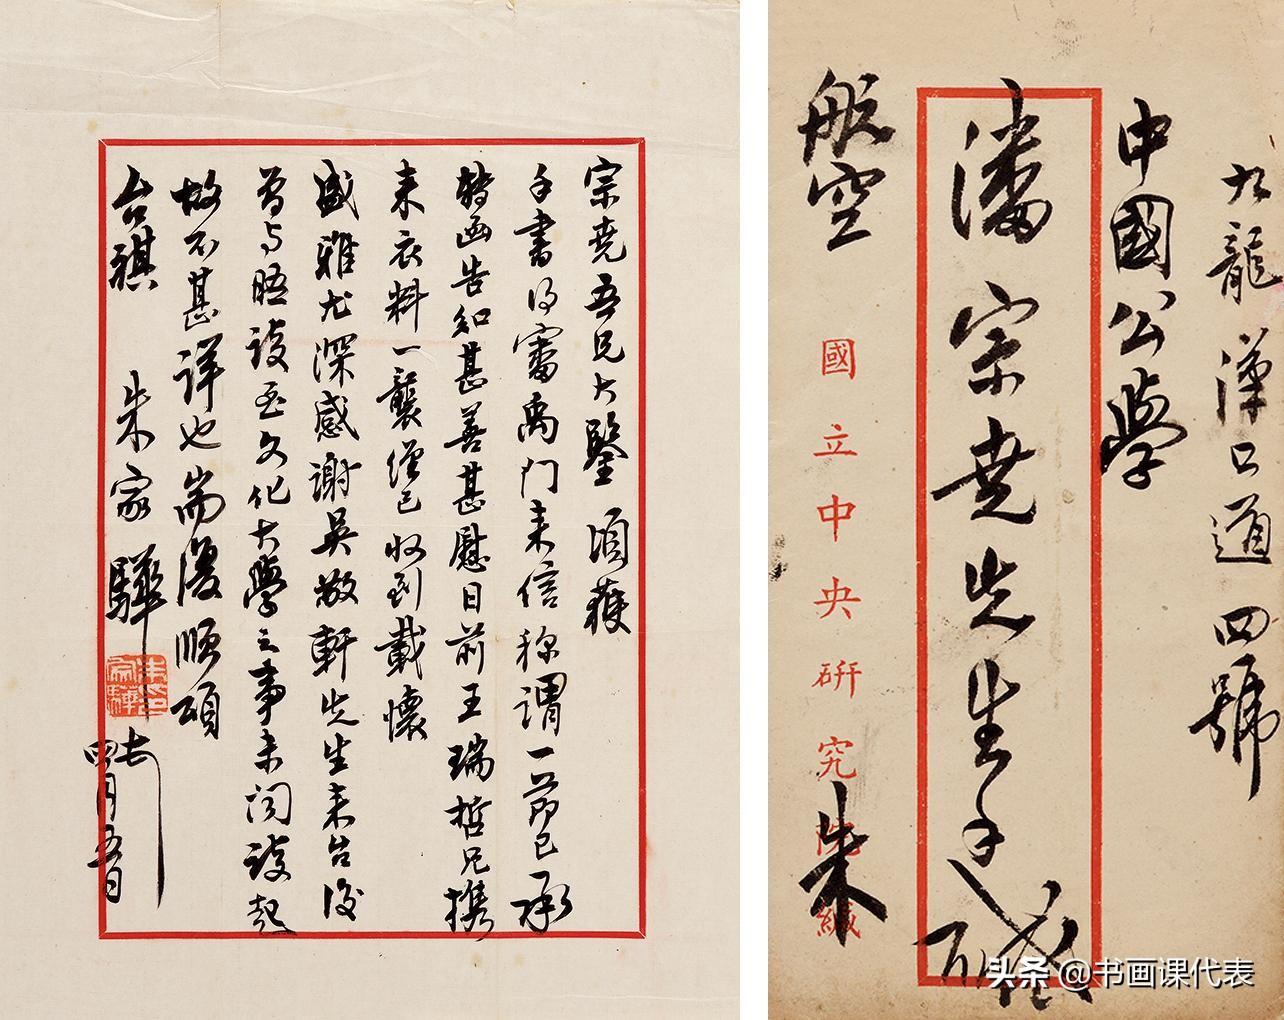 宗堯吾兄大鑒頃獲
手書得審禹門來信稱謂一節已承
轉函告知甚善甚慰日前王瑞哲兄攜
來衣料一襲僅已收到載懷
盛雅尤深感謝吳敬軒先生來台後
曾與晤談至文化大學之事未聞談起
故不甚詳也耑復順頌
台祺 朱家驊
四月五日
九龍漢口道四號
中國公學
潘宗堯先生手
航空
國立中央研究院緘
朱
头条 @书画课代表